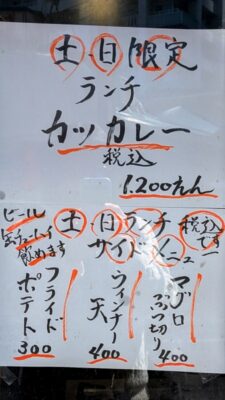 土日限定
ランチ
カツカレー
税込
1.200えん
土日ランチ
サイドメニュー
税込です
ビール
缶チューハイ
飲めます
マグロぶつ切り
400
ウィンナー天
400
フライドポテト
300